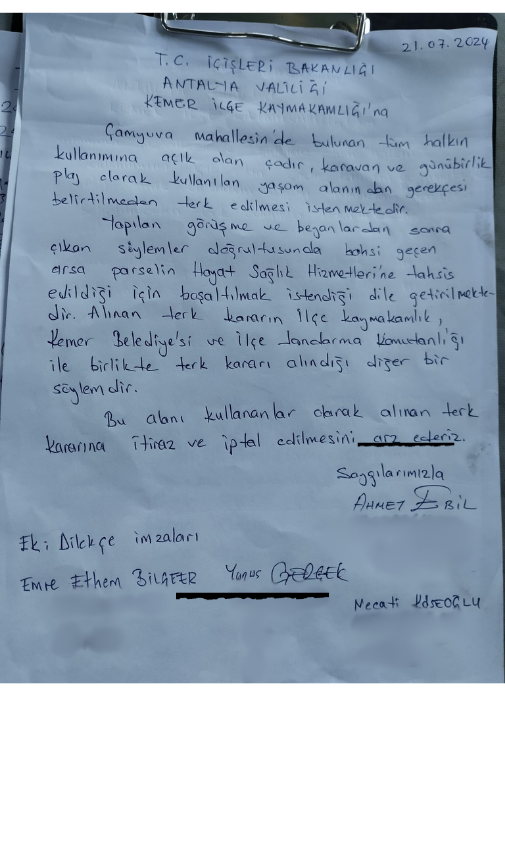 21.07.2024
T.C. İÇİŞLERİ BAKANLIĞI
ANTALYA VALİLİĞİ
KEMER İLÇE KAYMAKAMLIĞI'na
Çamyuva mahallesin'de bulunan tüm halkın
kullanımına açık olan çadır, karavan ve günübirlik
plaj olarak kullanılan yaşam alanından gerekçesi
belirtilmeden terk edilmesi istenmektedir.
Yapılan görüşme ve beyanlardan sonra
çıkan söylemler doğrultusunda bahsi geçen
arsa parselin Hayat Sağlık Hizmetleri'ne tahsis
edildiği için boşaltılmak istendiği dile getirilmekte-
dir. Alınan terk kararın İlçe kaymakamlık,
Kemer Belediye'si ve İlçe Jandarma Komutanlığı
ile birlikte terk kararı alındığı diğer bir
söylemdir.
Bu alanı kullananlar olarak alınan terk
kararına itiraz ve iptal edilmesini arz ederiz.
Saygılarımızla
AHMET BİL
Ek: Dilekçe imzaları
Emre Ethem BİLGER Yunus
Necati KÖSEOĞLU